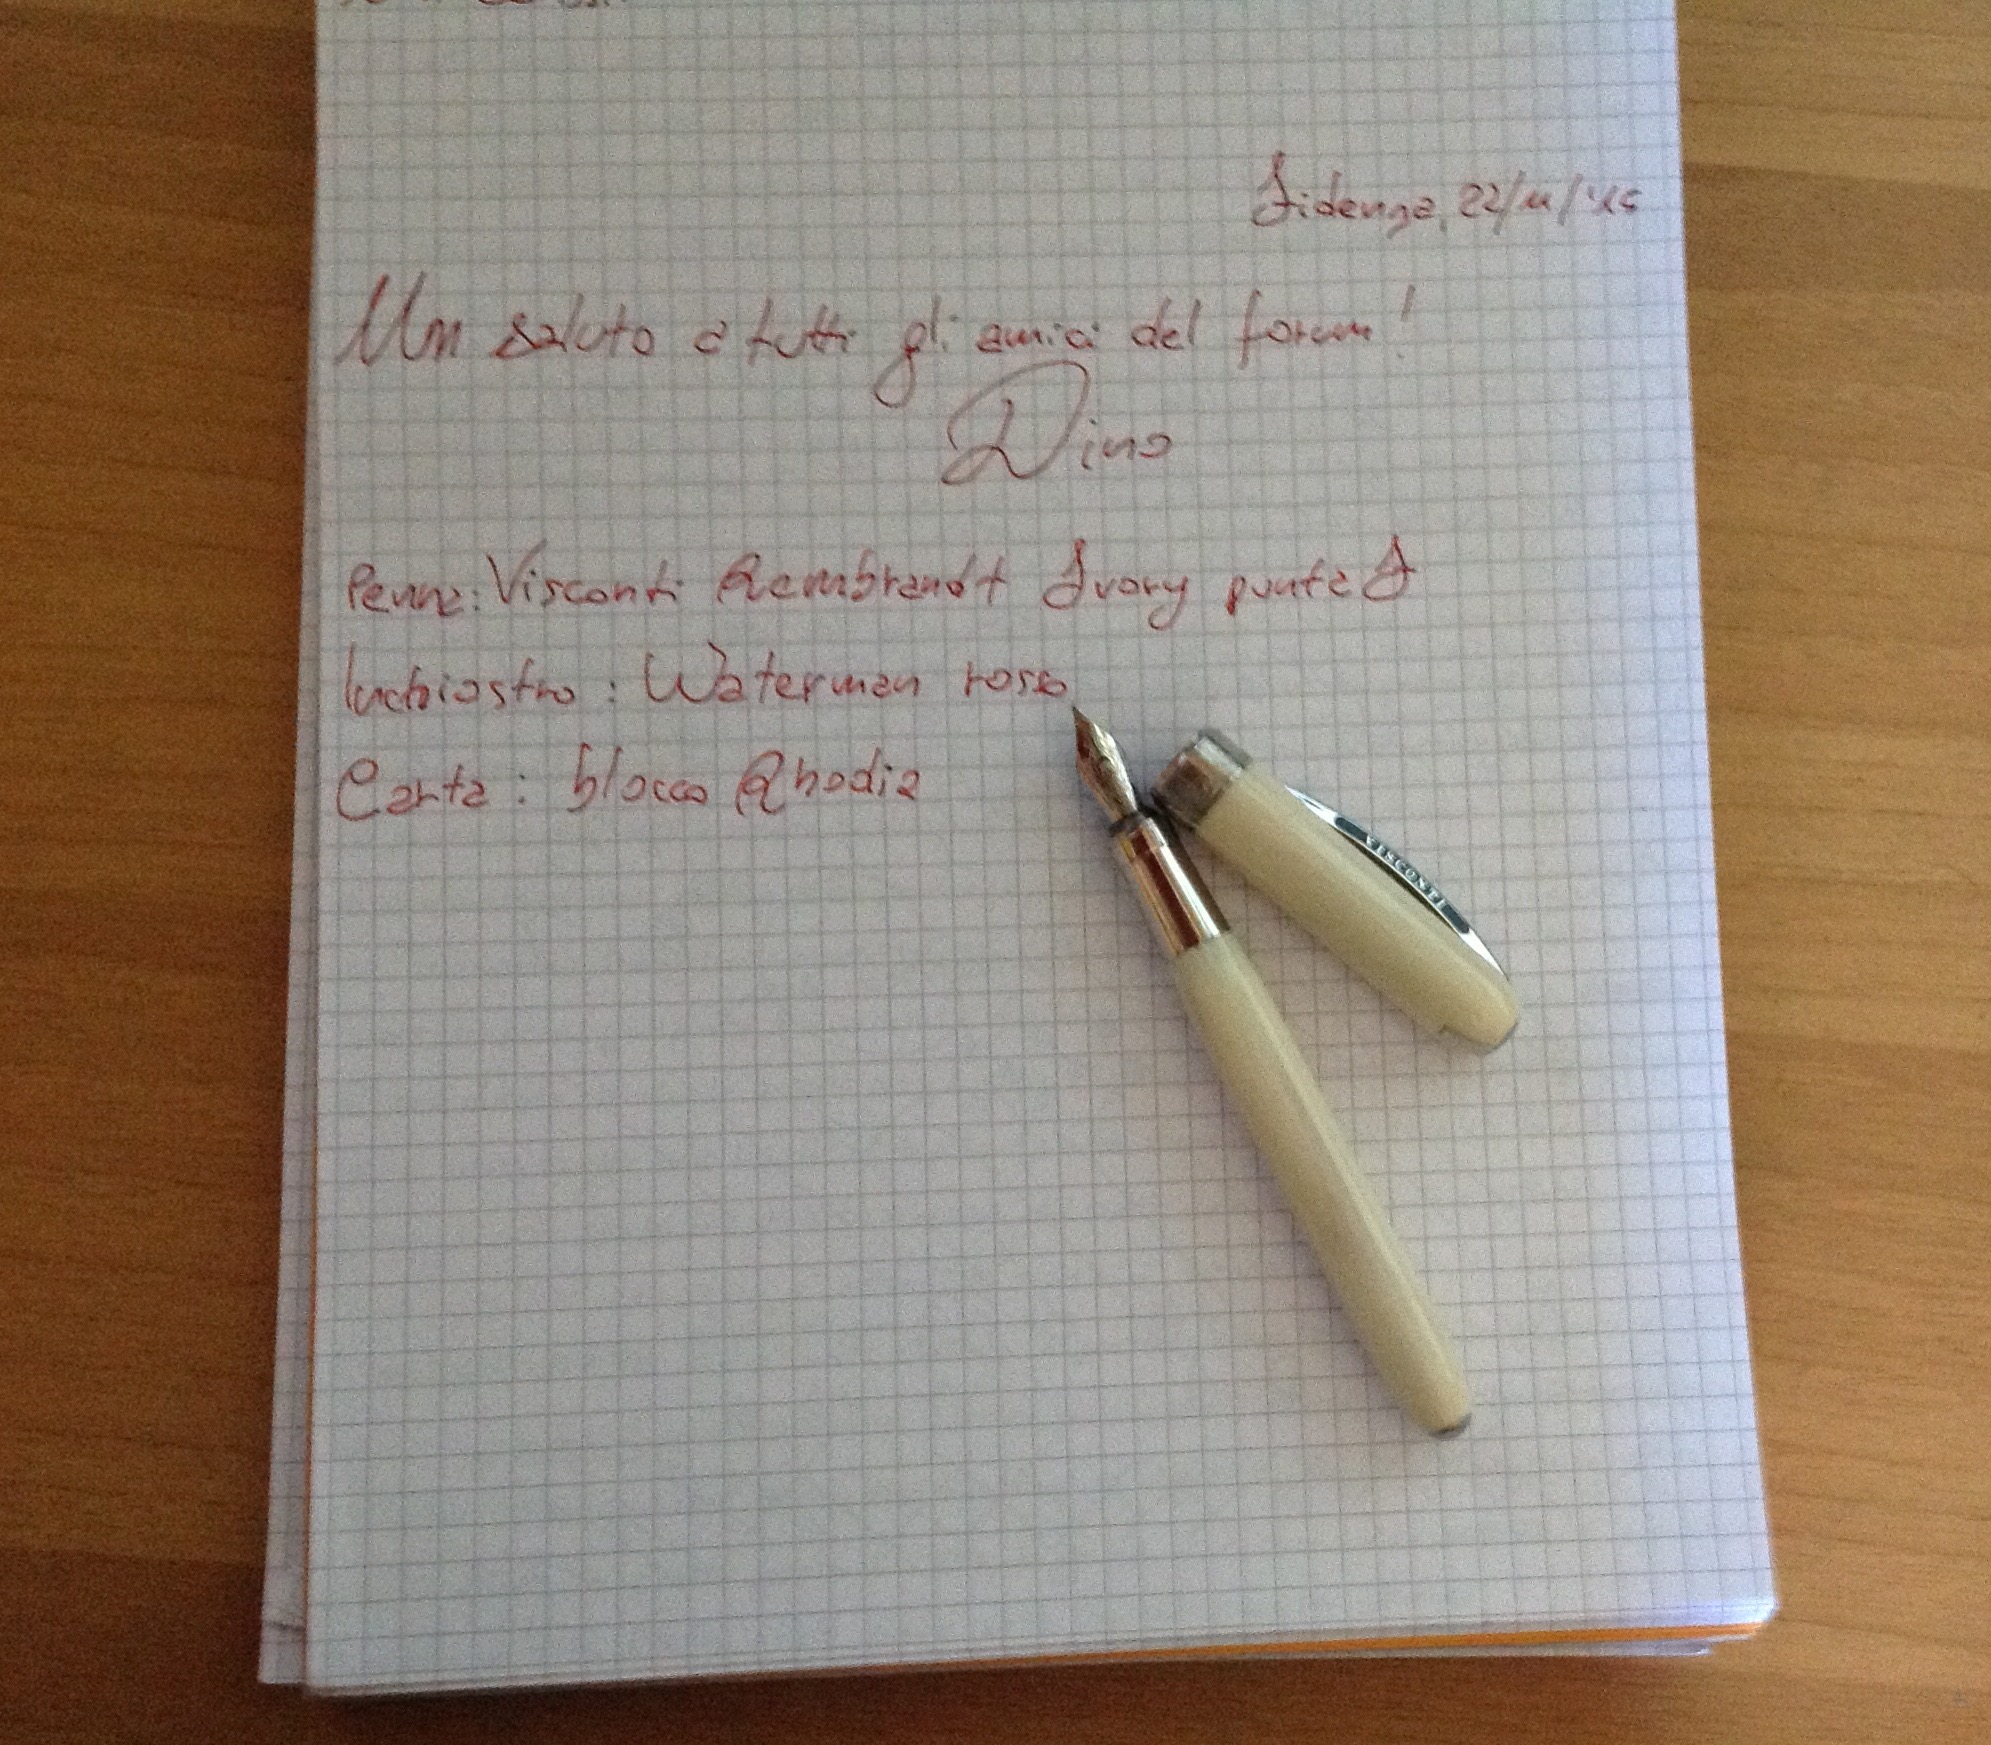 Fidenza, 22/11/'15
Un saluto a tutti gli amici del forum!
Dino
Penna: Visconti Rembrandt Ivory punta F
Inchiostro: Waterman rosso
Carta: blocco Rhodia
VISCONTI